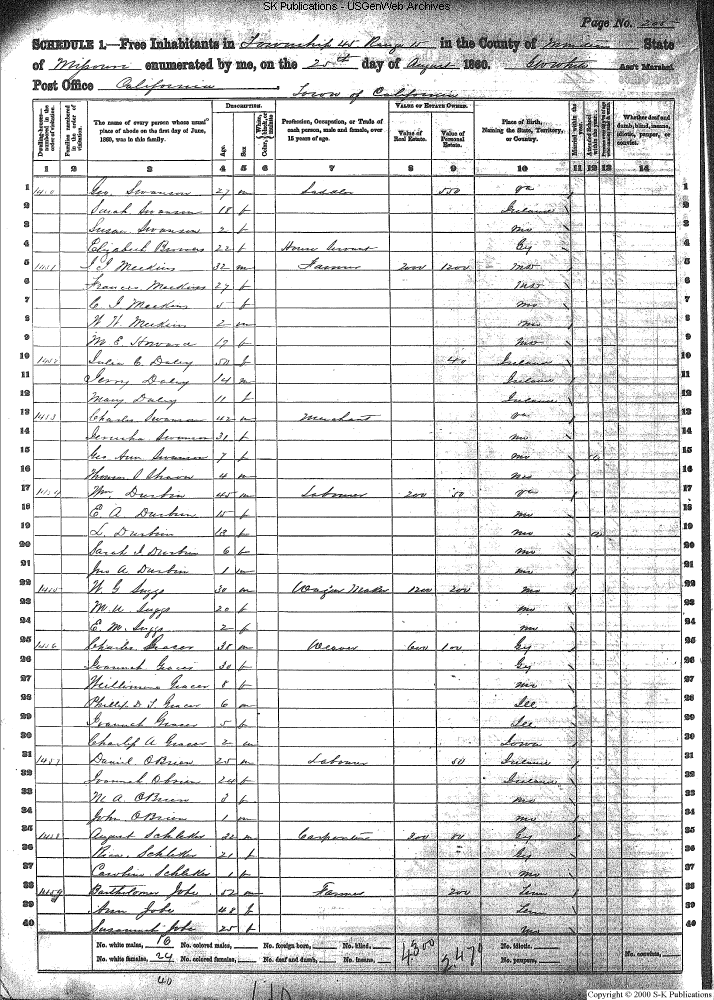 SK Publications - USGenWeb Archives
Page No. 205
SCHEDULE 1.—Free Inhabitants in Township 45 Range 15 in the County of Moniteau State
of Missouri enumerated by me, on the 25th day of August 1860. Ass't Marshal.
Post Office California
Town of California
Dwelling-houses—numbered in the order of visitation.
Families numbered in the order of visitation.
The name of every person whose usual place of abode on the first day of June, 1860, was in this family.
DESCRIPTION.
Age.
Sex
Color, White, black, or mulatto
Profession, Occupation, or Trade of each person, male and female, over 15 years of age.
VALUE OF ESTATE OWNED.
Value of Real Estate.
Value of Personal Estate.
Place of Birth, Naming the State, Territory, or Country.
Married within the year.
Whether deaf and dumb, blind, insane, idiotic, pauper, or convict.
1 2 3 4 5 6 7 8 9 10 11 12 13 14
1 1450 Geo. Swanson 27 m Saddler 550 Va 1
2 Sarah Swanson 18 f Ireland 2
3 Susan Swanson 2 f Mo 3
4 Elizabeth 22 f House Servant Gy 4
5 1451 Meekins 32 m Farmer 2000 1200 5
6 Frances Meekins 27 f 6
7 Meekins 5 f Mo 7
8 W H Meekins 2 m Mo 8
9 M E Howard 17 f Mo 9
10 1452 Julia C Daley 50 f 40 Ireland 10
11 Jerry Daley 14 m Ireland 11
12 Mary Daley 11 f Ireland 12
13 1453 Charles Swanson 42 m Merchant Va 13
14 Jerusha Swanson 31 f Mo 14
15 Geo Ann Swanson 7 f Mo 15
16 Thomas 4 m Mo 16
17 1454 Wm Durbin 45 m Labourer 200 50 Va 17
18 E A Durbin 15 f Mo 18
19 L Durbin 12 f Mo 19
20 Sarah J Durbin 6 f Mo 20
21 Jno A Durbin 1 m Mo 21
22 1455 W G Suggs 30 m Wagon Maker 1200 200 Mo 22
23 M A Suggs 20 f Mo 23
24 E M Suggs 2 f Mo 24
25 1456 Charles Gracer 38 m Weaver 600 100 Gy 25
26 Joannah Gracer 30 f Gy 26
27 Willimina Gracer 8 f Mo 27
28 Phillip D T Gracer 6 m Ill 28
29 Joannah Gracer 5 f Ill 29
30 Charles A Gracer 2 m Iowa 30
31 1457 Daniel OBrien 25 m Labourer 50 Ireland 31
32 Joannah Obrien 24 f Ireland 32
33 M A OBrien 3 f Mo 33
34 John OBrien 1 m Mo 34
35 1458 August Schleker 32 m Carpenter 300 80 Gy 35
36 Schleker 21 f Gy 36
37 Caroline Schleker 1 f Mo 37
38 1459 Bartholomew Jobe 52 m Farmer 200 Tenn 38
39 Ann Jobe 48 f Tenn 39
40 Susannah Jobe 25 f Mo 40
No. white males, 16 No. colored males, No. foreign born, No. blind, 4300 2470 No. idiotic,
No. white females, 24 No. colored females, No. deaf and dumb, No. insane, No. paupers, No. convicts,
40
Copyright © 2000 S-K Publications